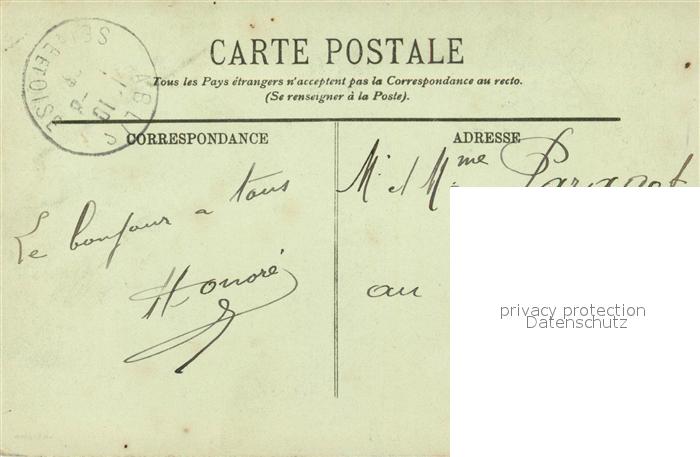 CARTE POSTALE
Tous les Pays étrangers n'acceptent pas la Correspondance au recto.
(Se renseigner à la Poste).
CORRESPONDANCE
ADRESSE
Le bonjour a tous
Honoré
Mr et Mme
au
SEINE ET OISE
ABLIS
privacy protection
Datenschutz